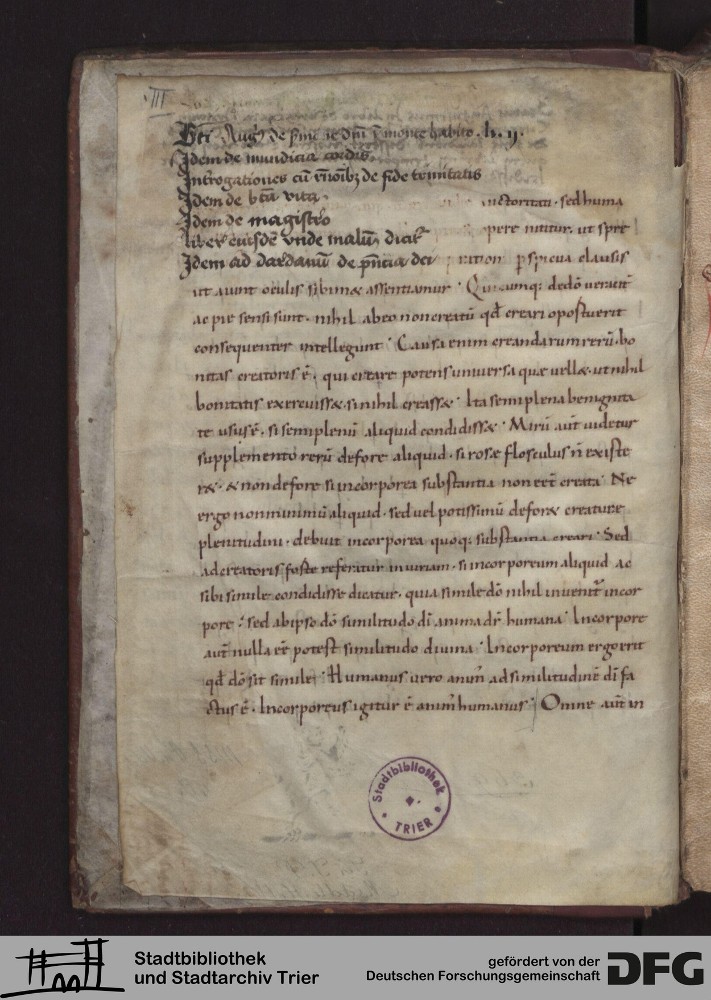 III
Sci Aug de sermone dni in monte habito . li . ij .
Idem de mundicia cordis
Interrogationes cu rnoibz de fide trinitatis
Idem de bta vita
Idem de magistro
liber eiusde vnde malum dicit
Idem ad dardanu de pncia dei
auctoritati . sed huma
pere nititur . ut spre
ration perspicua clausis
ut aiunt oculis sibimet assentiamur . Quicumq; de dō
ac pie sensi sunt . nihil ab eo non creatū qđ creari oportuerit
consequenter intellegunt . Causa enim creandarum rerū . bo
nitas creatoris ē . qui creare potens universa quae vellet . ut nihil
bonitatis exercuisset . si nihil creasset . Ita semiplena benignita
te usus ē . si semiplenū aliquid condidisset . Mirū aut̄ uidetur
supplemento rerū defore aliquid . si rosae flosculus n̄ existe
ret . et non defore si incorporea substantia non eēt creata . Ne
ergo non minimū aliquid . sed uel potissimū deforet creaturae
plenitudini . debuit incorporea quoq; substantia creari . Sed
ad creatoris foste referitur iniuriam . si incorporeum aliquid ac
sibi simile condidisse dicatur . quia simile dō nihil inuenit incor
pore . sed ab ipso dō similitudo dī anima dr̄ humana . Incorpore
aut̄ nulla eē potest similitudo diuina . Incorporeum ergo erit
qđ dō sit simile . Humanus uero anim̄ ad similitudinē dī fa
ctus ē . Incorporeus igitur ē anim̄ humanus . Omne aut̄ in
Stadtbibliothek
TRIER
Stadtbibliothek
und Stadtarchiv Trier
gefördert von der
Deutschen Forschungsgemeinschaft
DFG